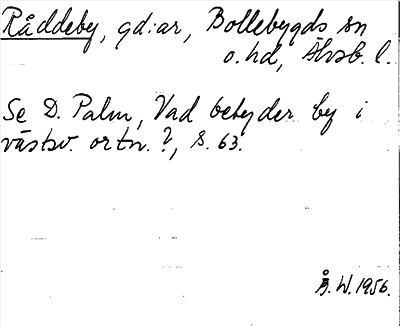 Råddeby, gd:ar, Bollebygds sn
o. hd, Älvsb. l.
Se D. Palm, Vad betyder by i
västsv. ortn. ?, s. 63.
Å. W. 1956.